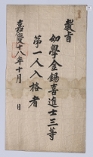 教旨
幼學金錫喜進士三等
第一人入格者
嘉慶十八年十月 日